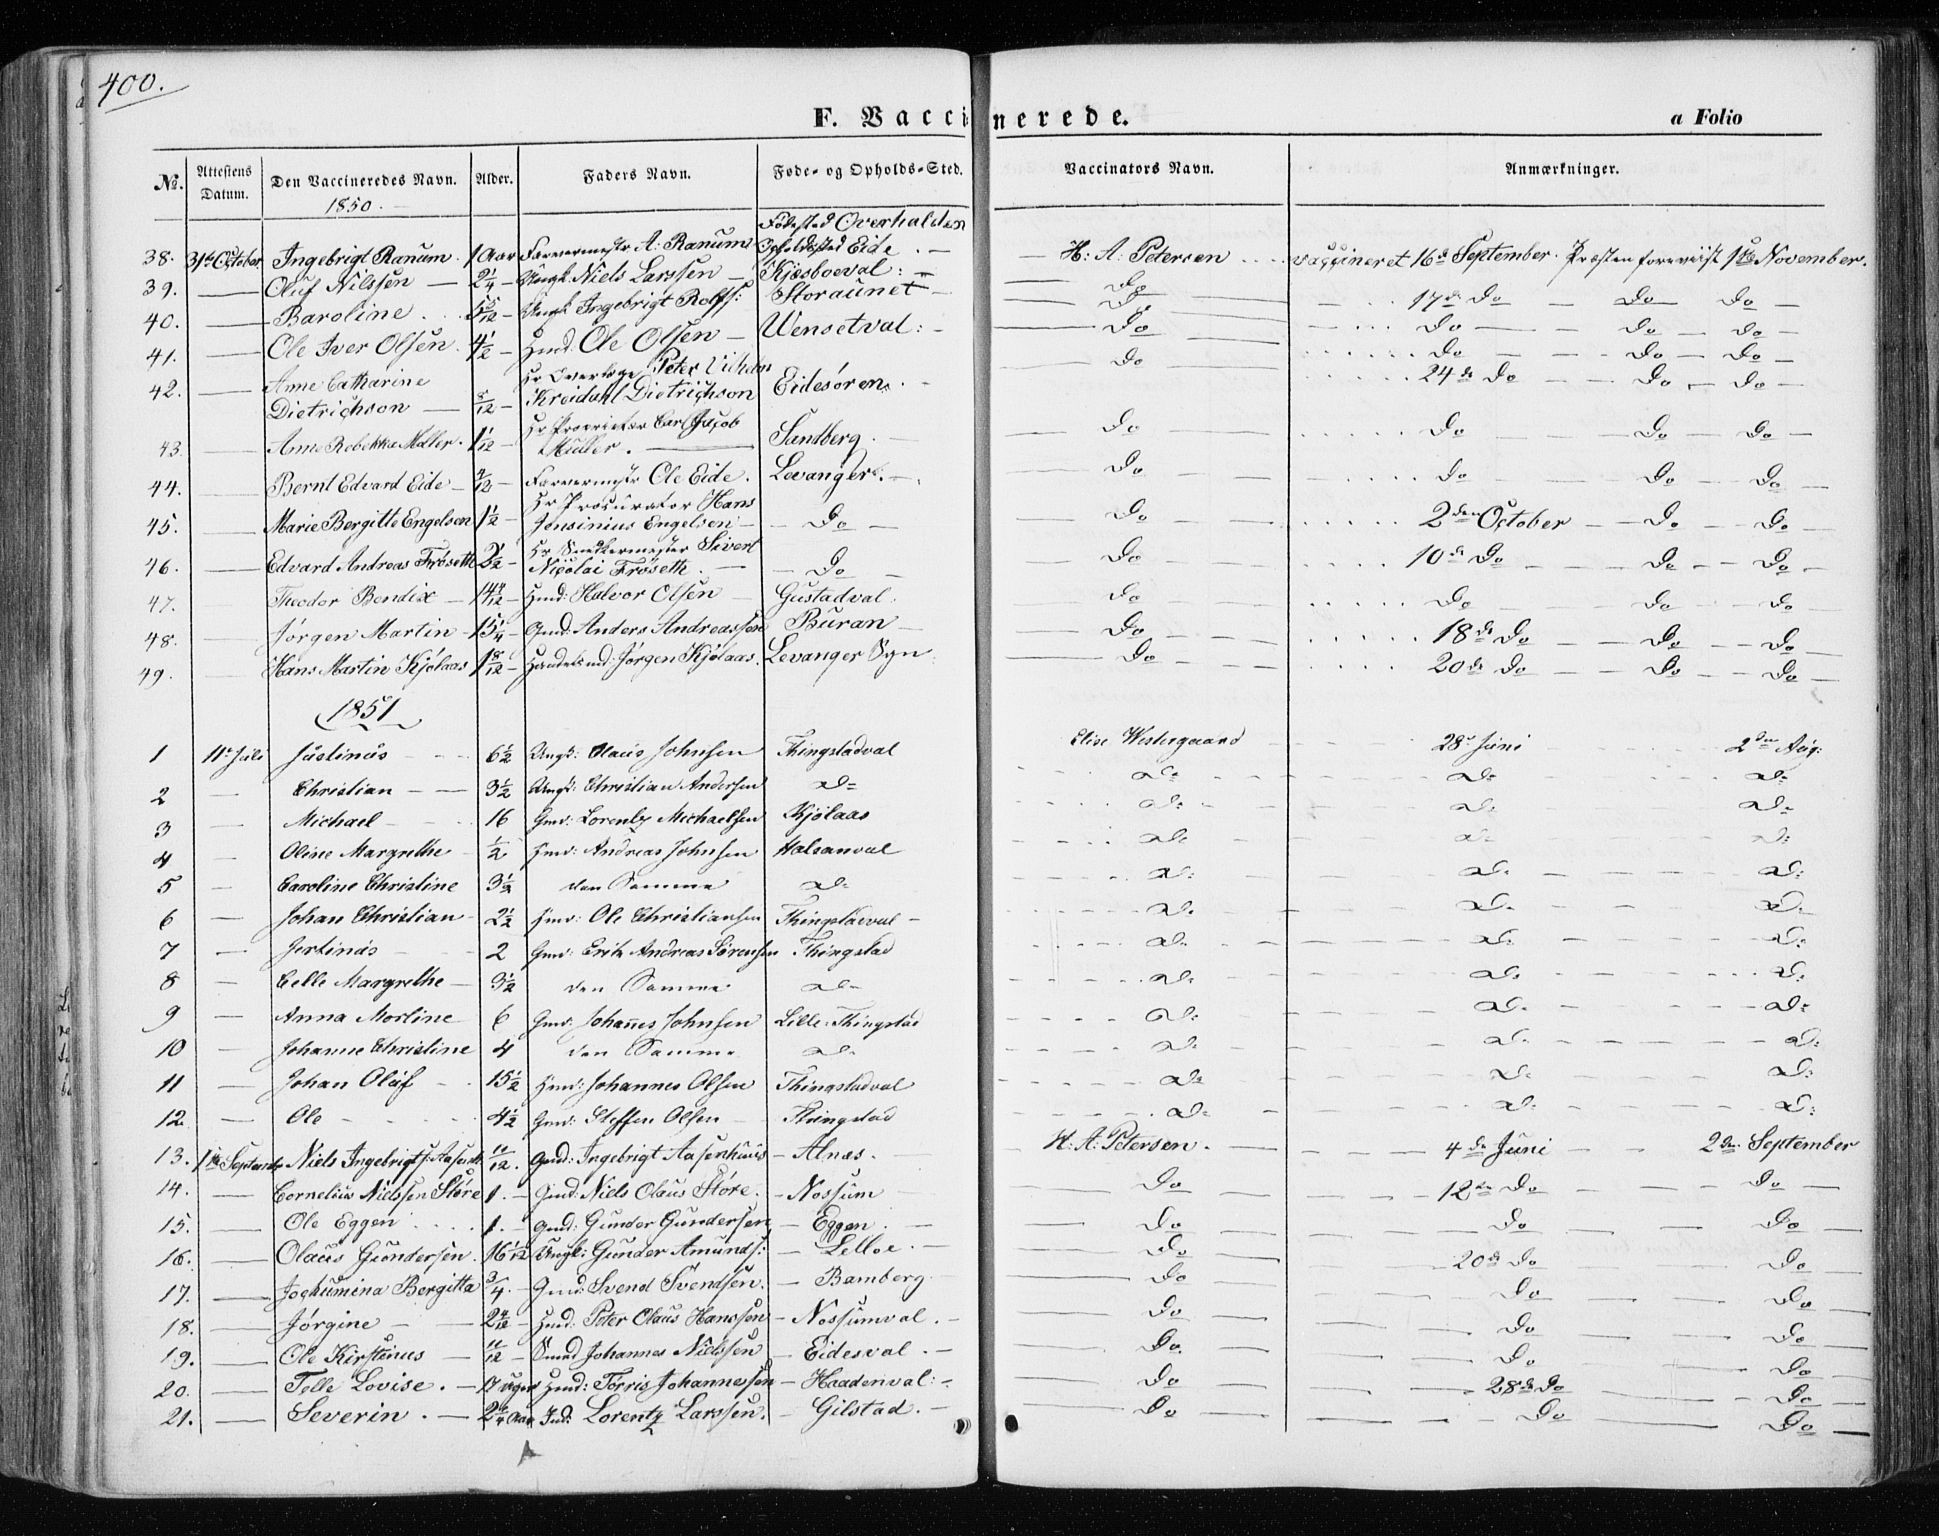 400.
F. Vaccinerede.
a Folio
No. Attestens Datum. Den Vaccineredes Navn. Alder. Faders Navn. Føde- og Opholds-Sted. Vaccinators Navn. Anmærkninger.
1850.
Fødested Overhalden
38. 31te October Ingebrigt Ranum 1 Aar Farvermestr A: Ranum Opholdssted Eide. — H: A: Petersen vaccineret 16de September. Præsten foreviist 1ste November.
39. — Oluf Nilssen — 2 1/4 — Ungk. Niels Larssen — Kjesboeval: — Do 17de Do — Do — Do —
40. — Baroline. 5 5/12 — Ungk Ingebrigt Rolfs: Storaunet — Do Do — Do — Do —
41. — Ole Iver Olsen. 4 1/2 — Hmd. Ole Olsen — Wensetval: — Do Do — Do — Do —
42. — Anne Catharine Hr Overlæge Peter Vilhelm
Dietrichson — 8/12 — Kreidahl Dietrichson Eidesøren. — Do 24de Do — Do — Do —
43. — Anne Rebekka Müller. 1 1/12 — Hr Proprietær Carl Jacob
Müller. — Sandberg. — Do Do — Do — Do —
44. — Bernt Edvard Eide — 9/12 — Farvermestr Ole Eide. Levanger. — Do Do — Do — Do —
45. — Marie Bergitte Engelsen 1 1/2 — Hr Procurator Hans
Jensinius Engelsen — Do — Do 2den October — Do — Do —
46. — Edvard Andreas Frøseth 2 1/2 — Hr Snedkermester Sivert
Nicolai Frøseth. — Do — Do 10de Do — Do — Do —
47. — Theodor Bendix — 14 4/12 — Hmd: Halvor Olsen — Gustadval. Do Do — Do — Do
48. — Jørgen Martin — 15 1/4 — Gmd: Anders Andreassen Buran — Do 18de Do — Do — Do —
49. — Hans Martin Kjølaas 1 8/12 — Handelsmd: Jørgen Kjølaas. Levanger Syn Do 20de Do — Do — Do —
1851
1 11te Juli Justinus 6 1/2 Ungk: Olaus Johnsen Thingstadval Elise Westergaard 28de Juni 2den Aug:
2 — Christian — 3 1/2 Ungk: Christian Andersen do do do do
3 — Michael 16 Gmd: Lorentz Michaelsen Kjølaas do do do
4 — Oline Margrethe 1/2 Hmd: Andreas Johnsen Halsanval do do do
5 — Caroline Christine 3 1/2 den Samme do do do do
6 — Johan Christian 2 1/2 Hmd: Ole Christiansen Thingstadval — do do do
7 — Jertinus 2 Gmd: Erik Andreas Sørensen Thingstad do do do
8 — Celle Margrethe — 3 1/2 den Samme do do do do
9 — Anna Mortine 6 Gmd: Johannes Johnsen Lille-Thingstad do do do
10 — Johanne Christine 4 den Samme do do do do
11 — Johan Oluf 15 1/2 Hmd: Johannes Olsen Thingstadval do do do
12 — Ole 4 1/2 Gmd: Steffen Olsen Thingstad do do do
13. 1ste September Niels Ingebrigts: Aasenh: 11/12. Gmd: Ingebrigt Aasenhuus — Alnæs. H: A: Petersen. — 4de Juni 2den September
14. — Cornelius Nielssen Støre 1. — Gmd: Niels Olaus Støre. — Nossum Do 12te Do — Do —
15. — Ole Eggen 1. — Gmd: Gunder Gundersen — Eggen. — Do — Do — Do
16. — Olaus Gundersen. 16 1/12 Ungk: Gunder Amunds: — Lelloe. — Do 20de Do — Do
17. — Jochumina Bergitta 3/4. — Gmd: Svend Svendsen. — Bamberg Do — Do — Do
18. — Jørgine — 2 4/12 — Hmd: Peter Olaus Hanssen — Nossumval. — Do — Do — Do
19. — Ole Kirstinus — 11/12 — Smed Johannes Nielssen — Eidesval. — Do. — Do — Do
20. — Telle Lovise. — 17 Uger Hmd: Torris Johannessen — Haadenval: — Do — 28de Do — Do —
21. — Severin. — 2 3/4 Aar Ind: Lorentz Larssen. — Gilstad. — Do — Do — Do —